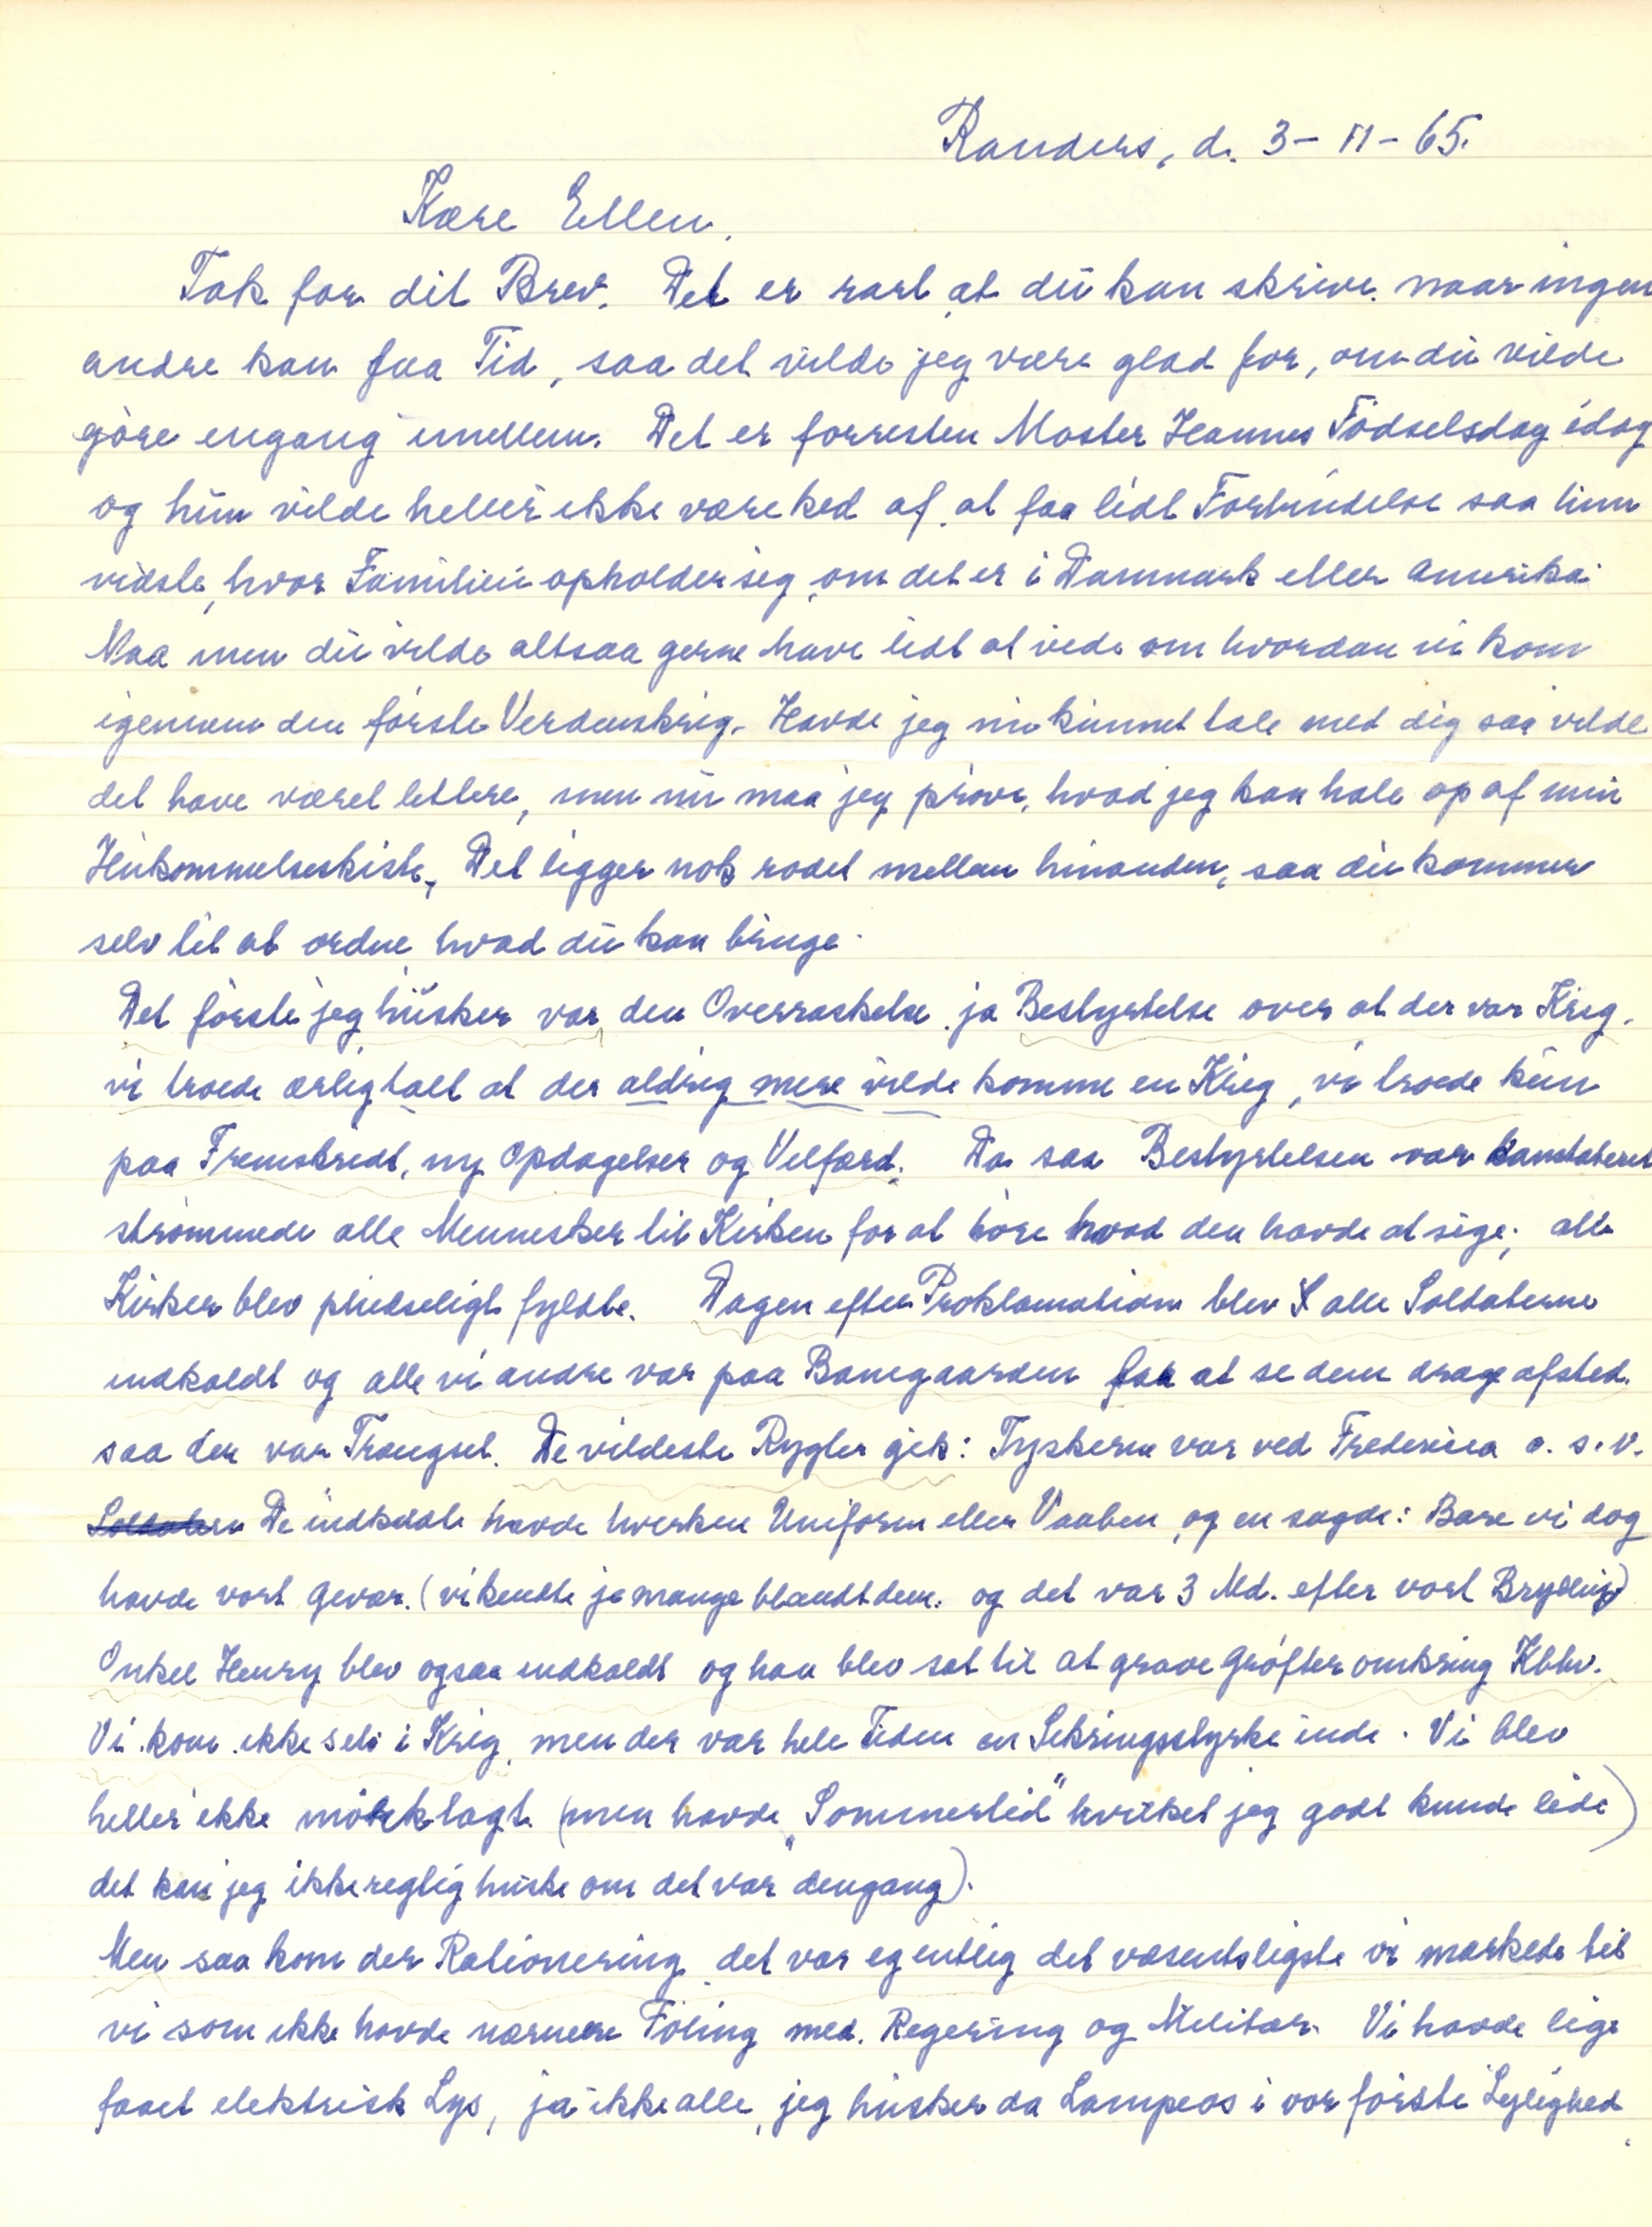 Randers, d. 3-11-65.
Kære Ellen.
Tak for dit Brev. Det er rart, at du kan skrive, naar ingen
andre kan faa Tid, saa det vilde jeg være glad for, om du vilde
gøre engang imellem. Det er forresten Moster Hannes Fødselsdag idag
og hun vilde heller ikke være ked af at faa lidt Forbindelse saa hun
vidste, hvor Familien opholder sig, om det er i Danmark eller Amerika.
Naa men du vilde altsaa gerne have lidt at vide om hvordan vi kom
igennem den første Verdenskrig. Havde jeg nu kunnet tale med dig saa vilde
det have været lettere, men nu maa jeg prøve, hvad jeg kan hale op af min
Hukommelseskiste, Det ligger nok rodet mellem hinanden, saa du kommer
selv til at ordne hvad du kan bruge.
Det første jeg husker var den Overraskelse ja Bestyrtelse over at der var Krig.
vi troede ærlig talt at der aldrig mere vilde komme en Krig, vi troede kun
paa Fremskridt, ny Opdagelser og Velfærd. Da saa Bestyrtelsen var konstateret
strømmede alle Mennesker til Kirken for at høre hvad den havde at sige; alle
Kirker blev pludseligt fyldte. Dagen efter Proklamationen blev alle Soldaterne
indkaldt og alle vi andre var paa Banegaarden for at se dem drage afsted.
saa der var Trængsel. De vildeste Rygter gik: Tyskerne var ved Fredericia o. s. v.
Soldatern De indkaldte havde hverken Uniform eller Vaaben, og en sagde: Bare vi dog
havde vort Gevær. (vi kendte jo mange blandt dem. og det var 3 Md. efter vort Bryllup)
Onkel Henry blev ogsaa indkaldt og han blev sat til at grave Grøfter omkring Kbhv.
Vi kom ikke selv i Krig, men der var hele Tiden en Sikringsstyrke inde. Vi blev
heller ikke mørklagt (men havde "Sommertid" hvilket jeg godt kunde lide)
det kan jeg ikke regtig huske om det var dengang).
Men saa kom der Rationering, det var egentlig det væsentsligste vi mærkede til
vi som ikke havde nærmere Føling med Regering og Militær. Vi havde lige
faaet elektrisk Lys, ja ikke alle, jeg husker da Lampeos i vor første Lejlighed